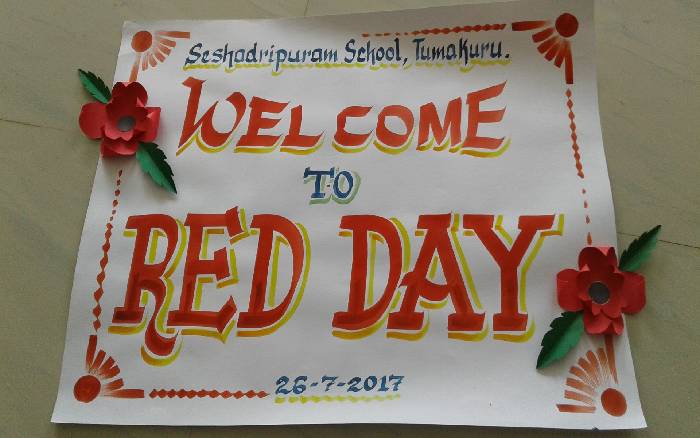 Seshadripuram School, Tumakuru.
WELCOME
TO
RED DAY
26-7-2017